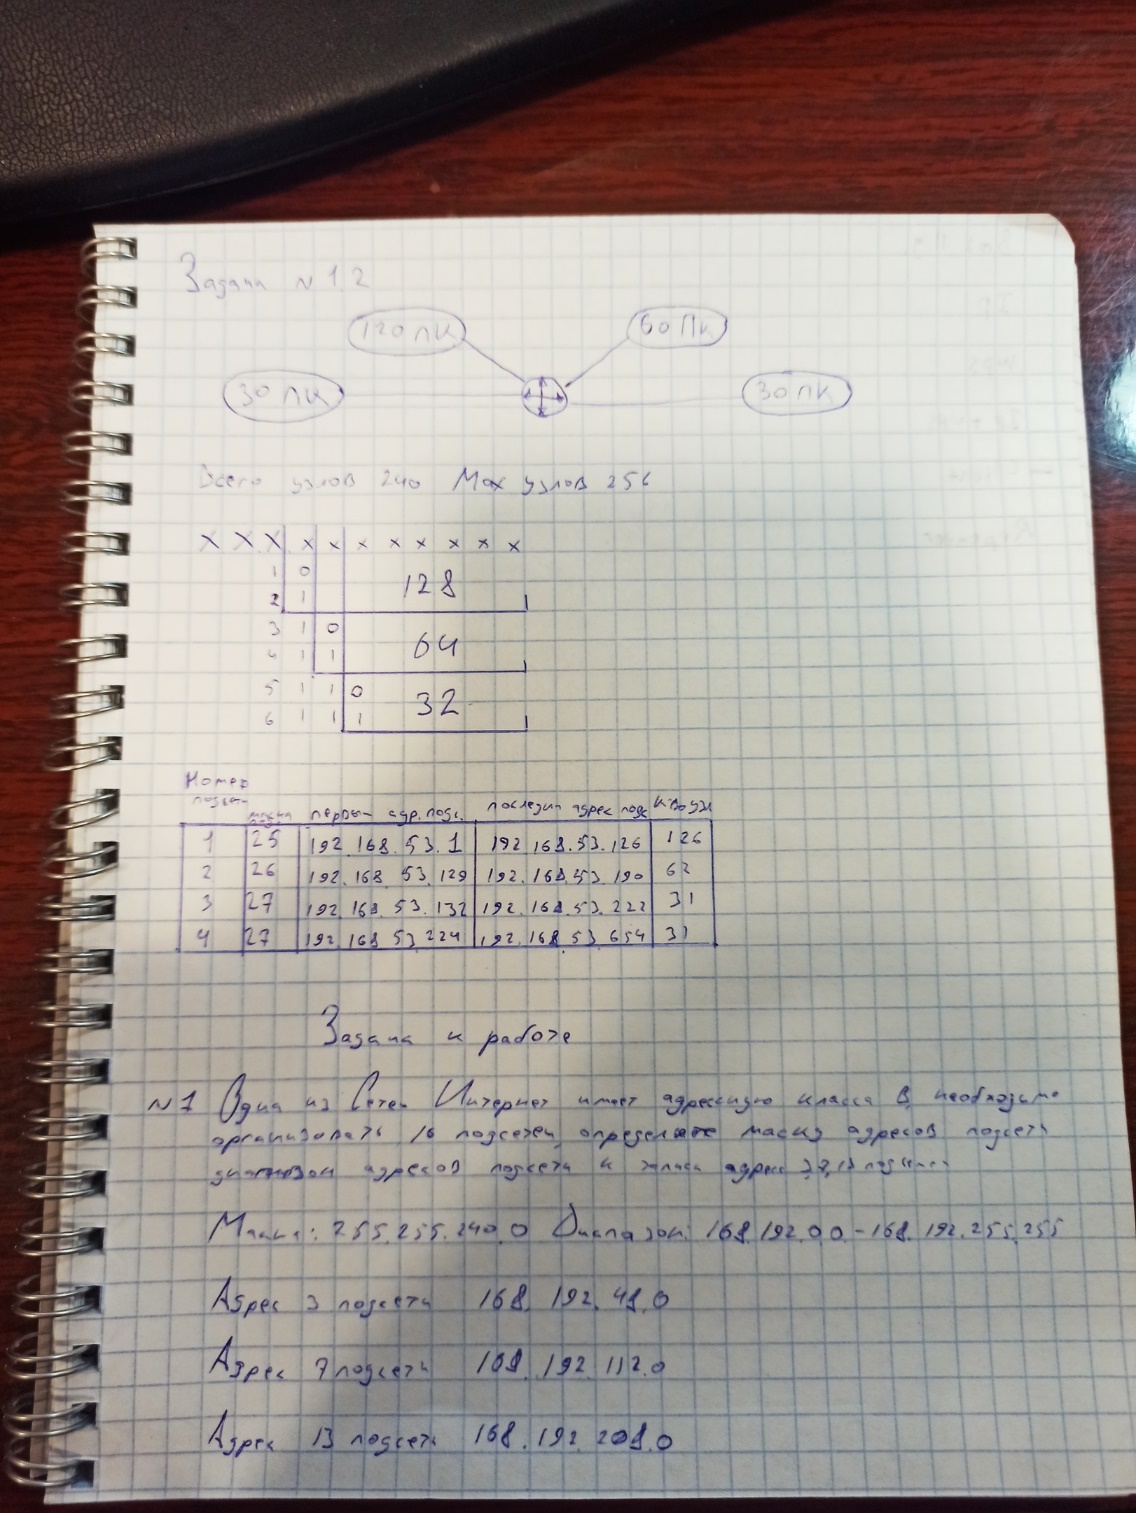 Задача N 1.2
120 ПК
60 ПК
30 ПК
30 ПК
Всего узлов 240 Max узлов 256
x x x x x x x x x x x
1 0
128
2 1
3 1 0
64
4 1 1
5 1 1 0
32
6 1 1 1
Номер
подсети
маска первый адр. подс. последний адрес подс к-во узл
1 25 192.168.53.1 192.168.53.126 126
2 26 192.168.53.129 192.168.53.190 62
3 27 192.168.53.132 192.168.53.222 31
4 27 192.168.53.224 192.168.53.654 31
Задача к работе
N1 Одна из Сетей Интернет имеет адресацию класса B, необходимо
организовать 16 подсетей, определите маску адресов подсети
диапазон адресов подсети и запись адрес 3,7,13 подсетей
Маска: 255.255.240.0 Диапазон: 168.192.0.0 - 168.192.255.255
Адрес 3 подсети 168.192.48.0
Адрес 7 подсеть 168.192.112.0
Адрес 13 подсеть 168.192.208.0